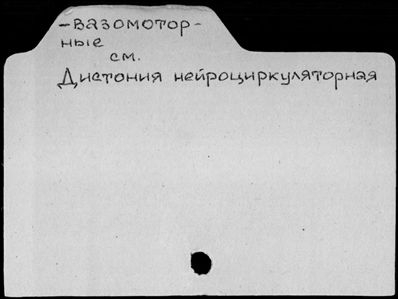 -вазомотор-
ные
см.
Дистония нейроциркуляторная